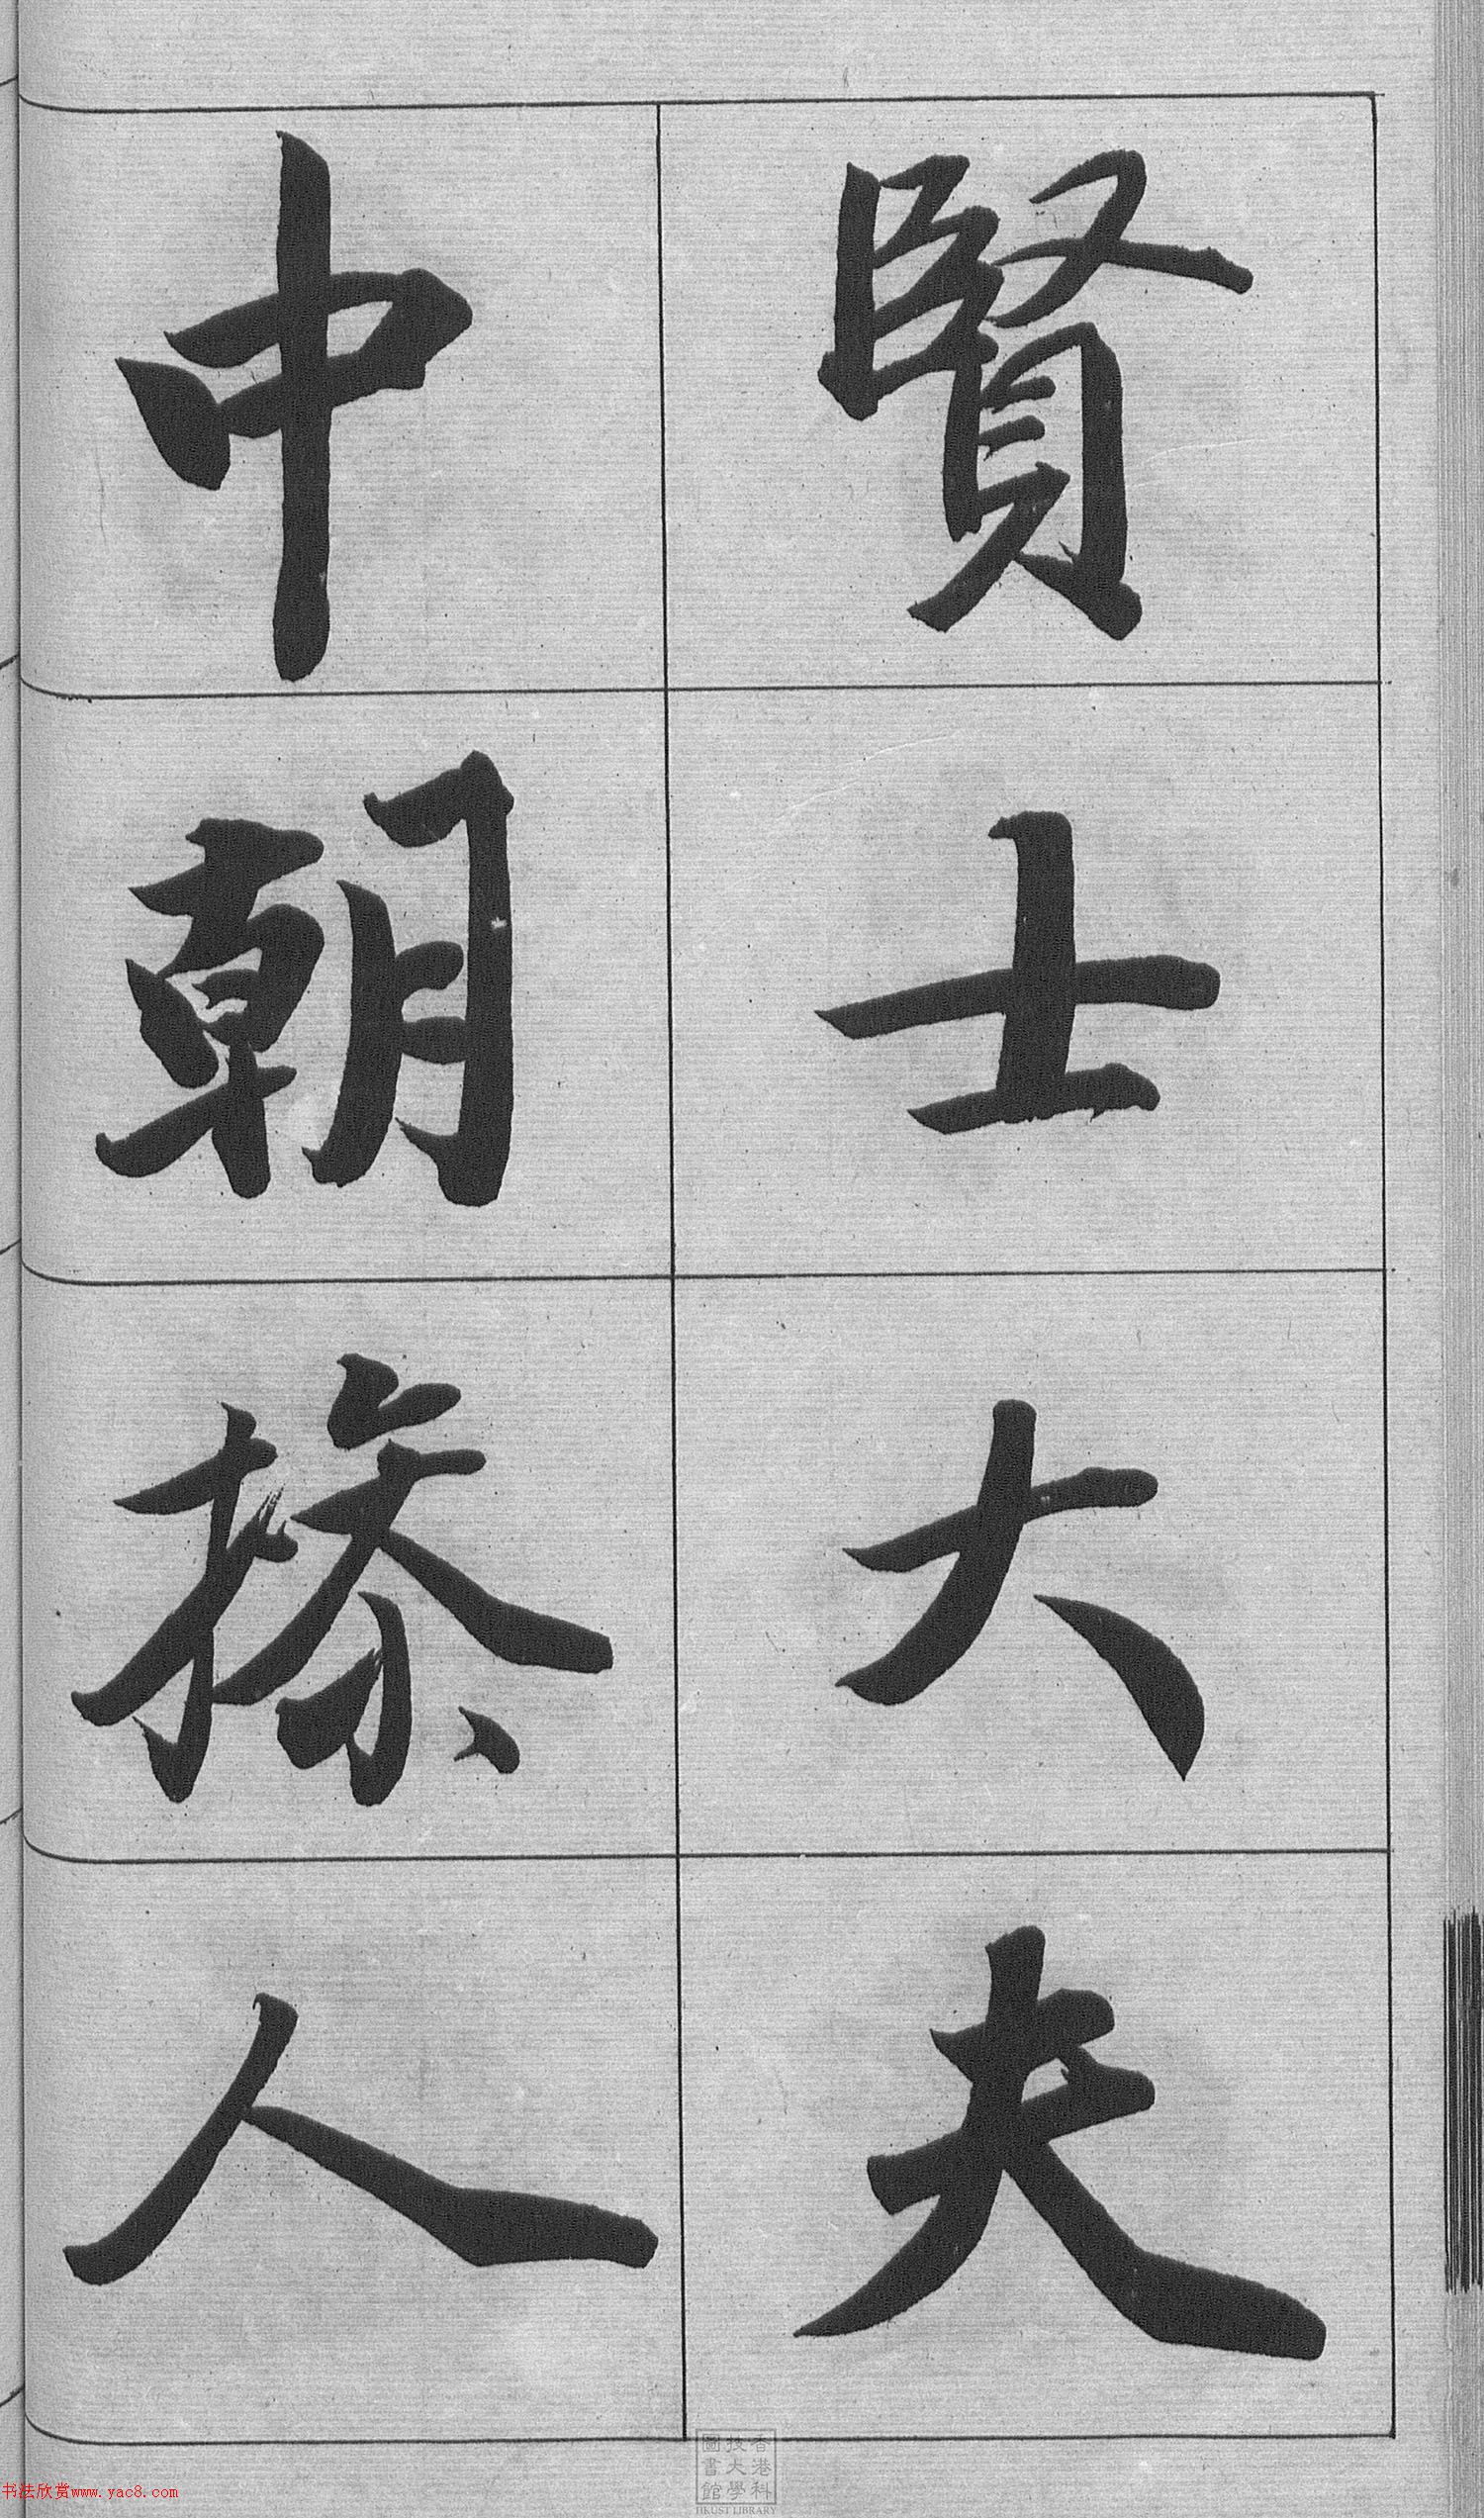 賢士大夫
中朝人
香港科
技大學
圖書館
HKUST LIBRARY
书法欣赏www.yac8.com